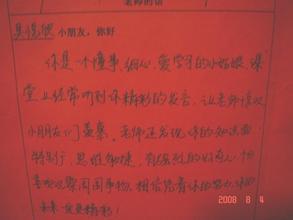 老师的话
小朋友，你好
你是一个懂事、细心、爱学习的小姑娘，课
堂上经常听到你精彩的发言，让老师惊叹
小朋友们羡慕。老师还发现你的知识面
特别广，思维敏捷，
喜欢观察周围事物，相信凭着你的努力，你的
未来会更精彩！
2008 8 4